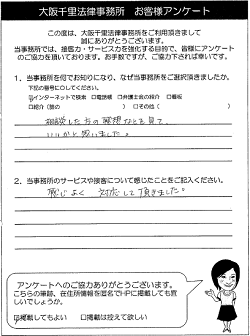 大阪千里法律事務所　お客様アンケート
この度は、大阪千里法律事務所をご利用頂きまして
誠にありがとうございます。
当事務所では、接客力・サービス力を強化する目的で、皆様にアンケート
のご協力を頂いております。お手数ですが、ご協力下されば幸いです。
1．当事務所を何でお知りになり、なぜ当事務所をご選択頂きましたか。
下記の番号に○してください。
☑インターネットで検索　□電話帳　□弁護士会の紹介　□看板
□紹介（誰の　　　）　□その他（　　　）
相談した方の感想などを見て、
いいかと思いました。
2．当事務所のサービスや接客について感じたことをご記入ください。
感じよく　対応して頂きました。
アンケートへのご協力ありがとうございます。
こちらの筆跡、在住所情報を匿名でHPに掲載しても宜
しいでしょうか。
☑掲載してもよい　□掲載は控えて欲しい